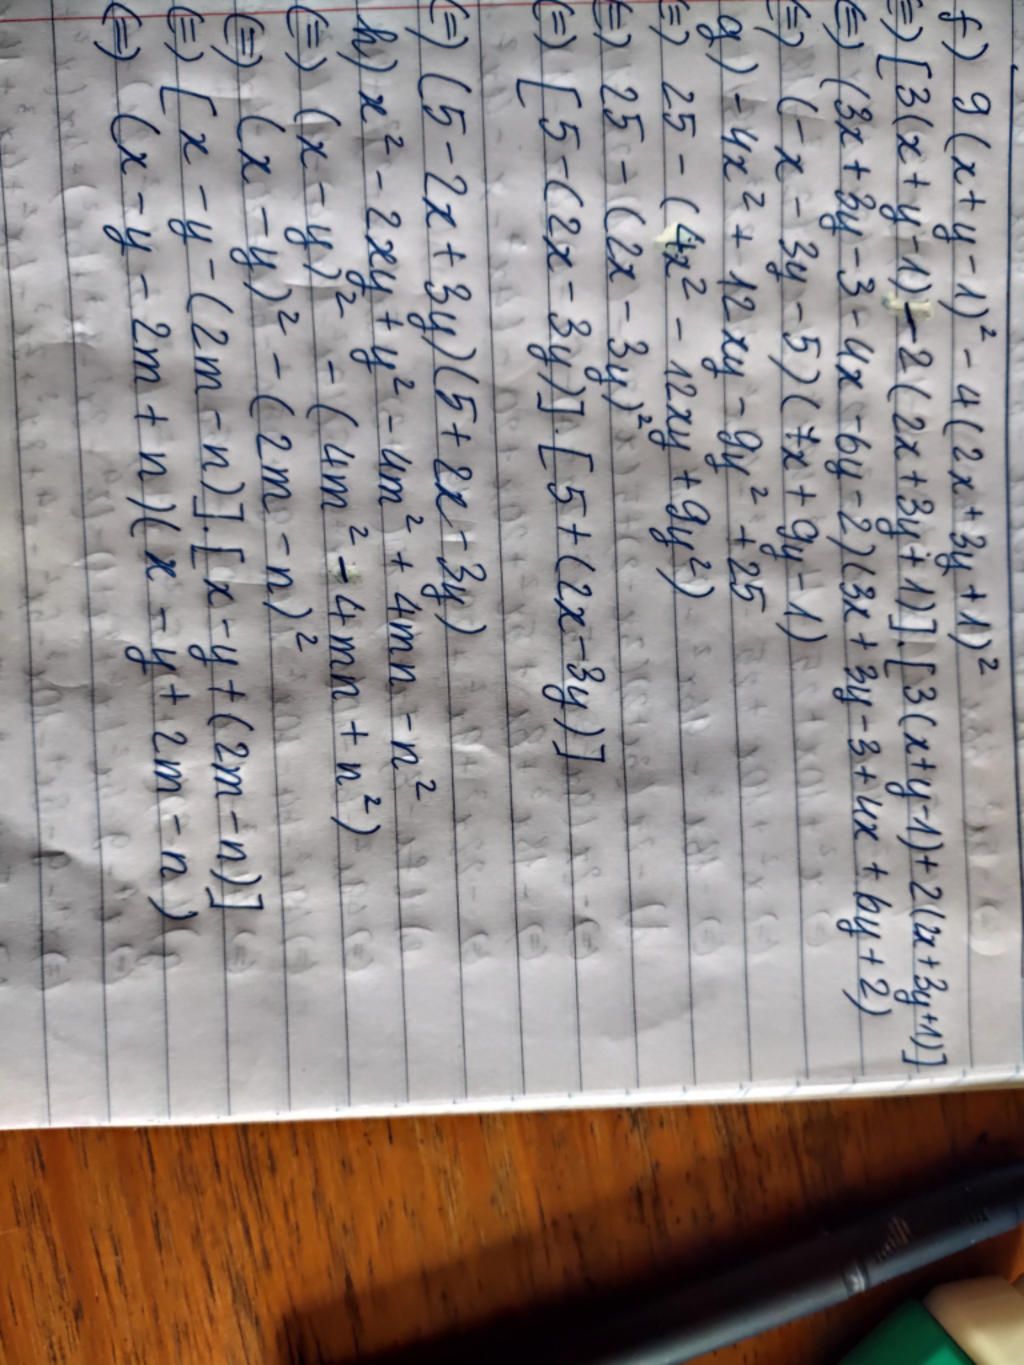 f) 9(x+y-1)² - 4(2x+3y+1)²
(=) [3(x+y-1) - 2(2x+3y+1)].[3(x+y-1)+2(2x+3y+1)]
(=) (3x+3y-3-4x-6y-2)(3x+3y-3+4x+6y+2)
(=) (-x-3y-5)(7x+9y-1)
g) -4x²+12xy-9y²+25
(=) 25-(4x²-12xy+9y²)
(=) 25-(2x-3y)²
(=) [5-(2x-3y)].[5+(2x-3y)]
(=) (5-2x+3y)(5+2x-3y)
h) x²-2xy+y²-4m²+4mn-n²
(=) (x-y)²-(4m²-4mn+n²)
(=) (x-y)²-(2m-n)²
(=) [x-y-(2m-n)].[x-y+(2m-n)]
(=) (x-y-2m+n)(x-y+2m-n)